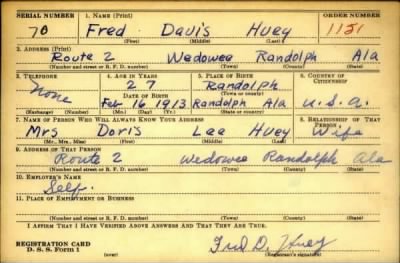 SERIAL NUMBER 1. NAME (Print) ORDER NUMBER
70 Fred Davis Huey 1151
(First) (Middle) (Last)
2. ADDRESS (Print)
Route 2 Wedowee Randolph Ala
(Number and street or R. F. D. number) (Town) (County) (State)
3. TELEPHONE 4. AGE IN YEARS 5. PLACE OF BIRTH 6. COUNTRY OF CITIZENSHIP
None 27 Randolph
DATE OF BIRTH (Town or county)
Feb 16 1913 Randolph Ala U.S.A.
(Exchange) (Number) (Mo.) (Day) (Yr.) (State or country)
7. NAME OF PERSON WHO WILL ALWAYS KNOW YOUR ADDRESS 8. RELATIONSHIP OF THAT PERSON
Mrs Doris Lee Huey Wife
(Mr., Mrs., Miss) (First) (Middle) (Last)
9. ADDRESS OF THAT PERSON
Route 2 Wedowee Randolph Ala
(Number and street or R. F. D. number) (Town) (County) (State)
10. EMPLOYER'S NAME
Self.
11. PLACE OF EMPLOYMENT OR BUSINESS
(Number and street or R. F. D. number) (Town) (County) (State)
I AFFIRM THAT I HAVE VERIFIED ABOVE ANSWERS AND THAT THEY ARE TRUE.
REGISTRATION CARD
D. S. S. Form 1 Fred D. Huey
(over) (Registrant's signature)